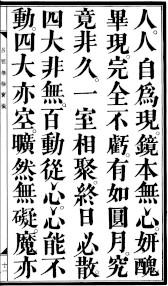 人。人自為現。鏡本無心。妍醜
畢現。完全不虧。有如圓月。究
竟非久。一室相聚。終日必散。
四大非無。百動從心。心能不
動。四大亦空。曠然無礙。魔亦